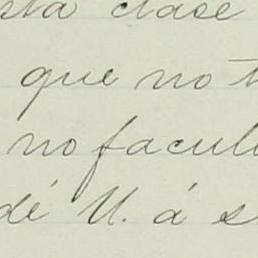 sta clase
que no t
no facul
dé U. á s